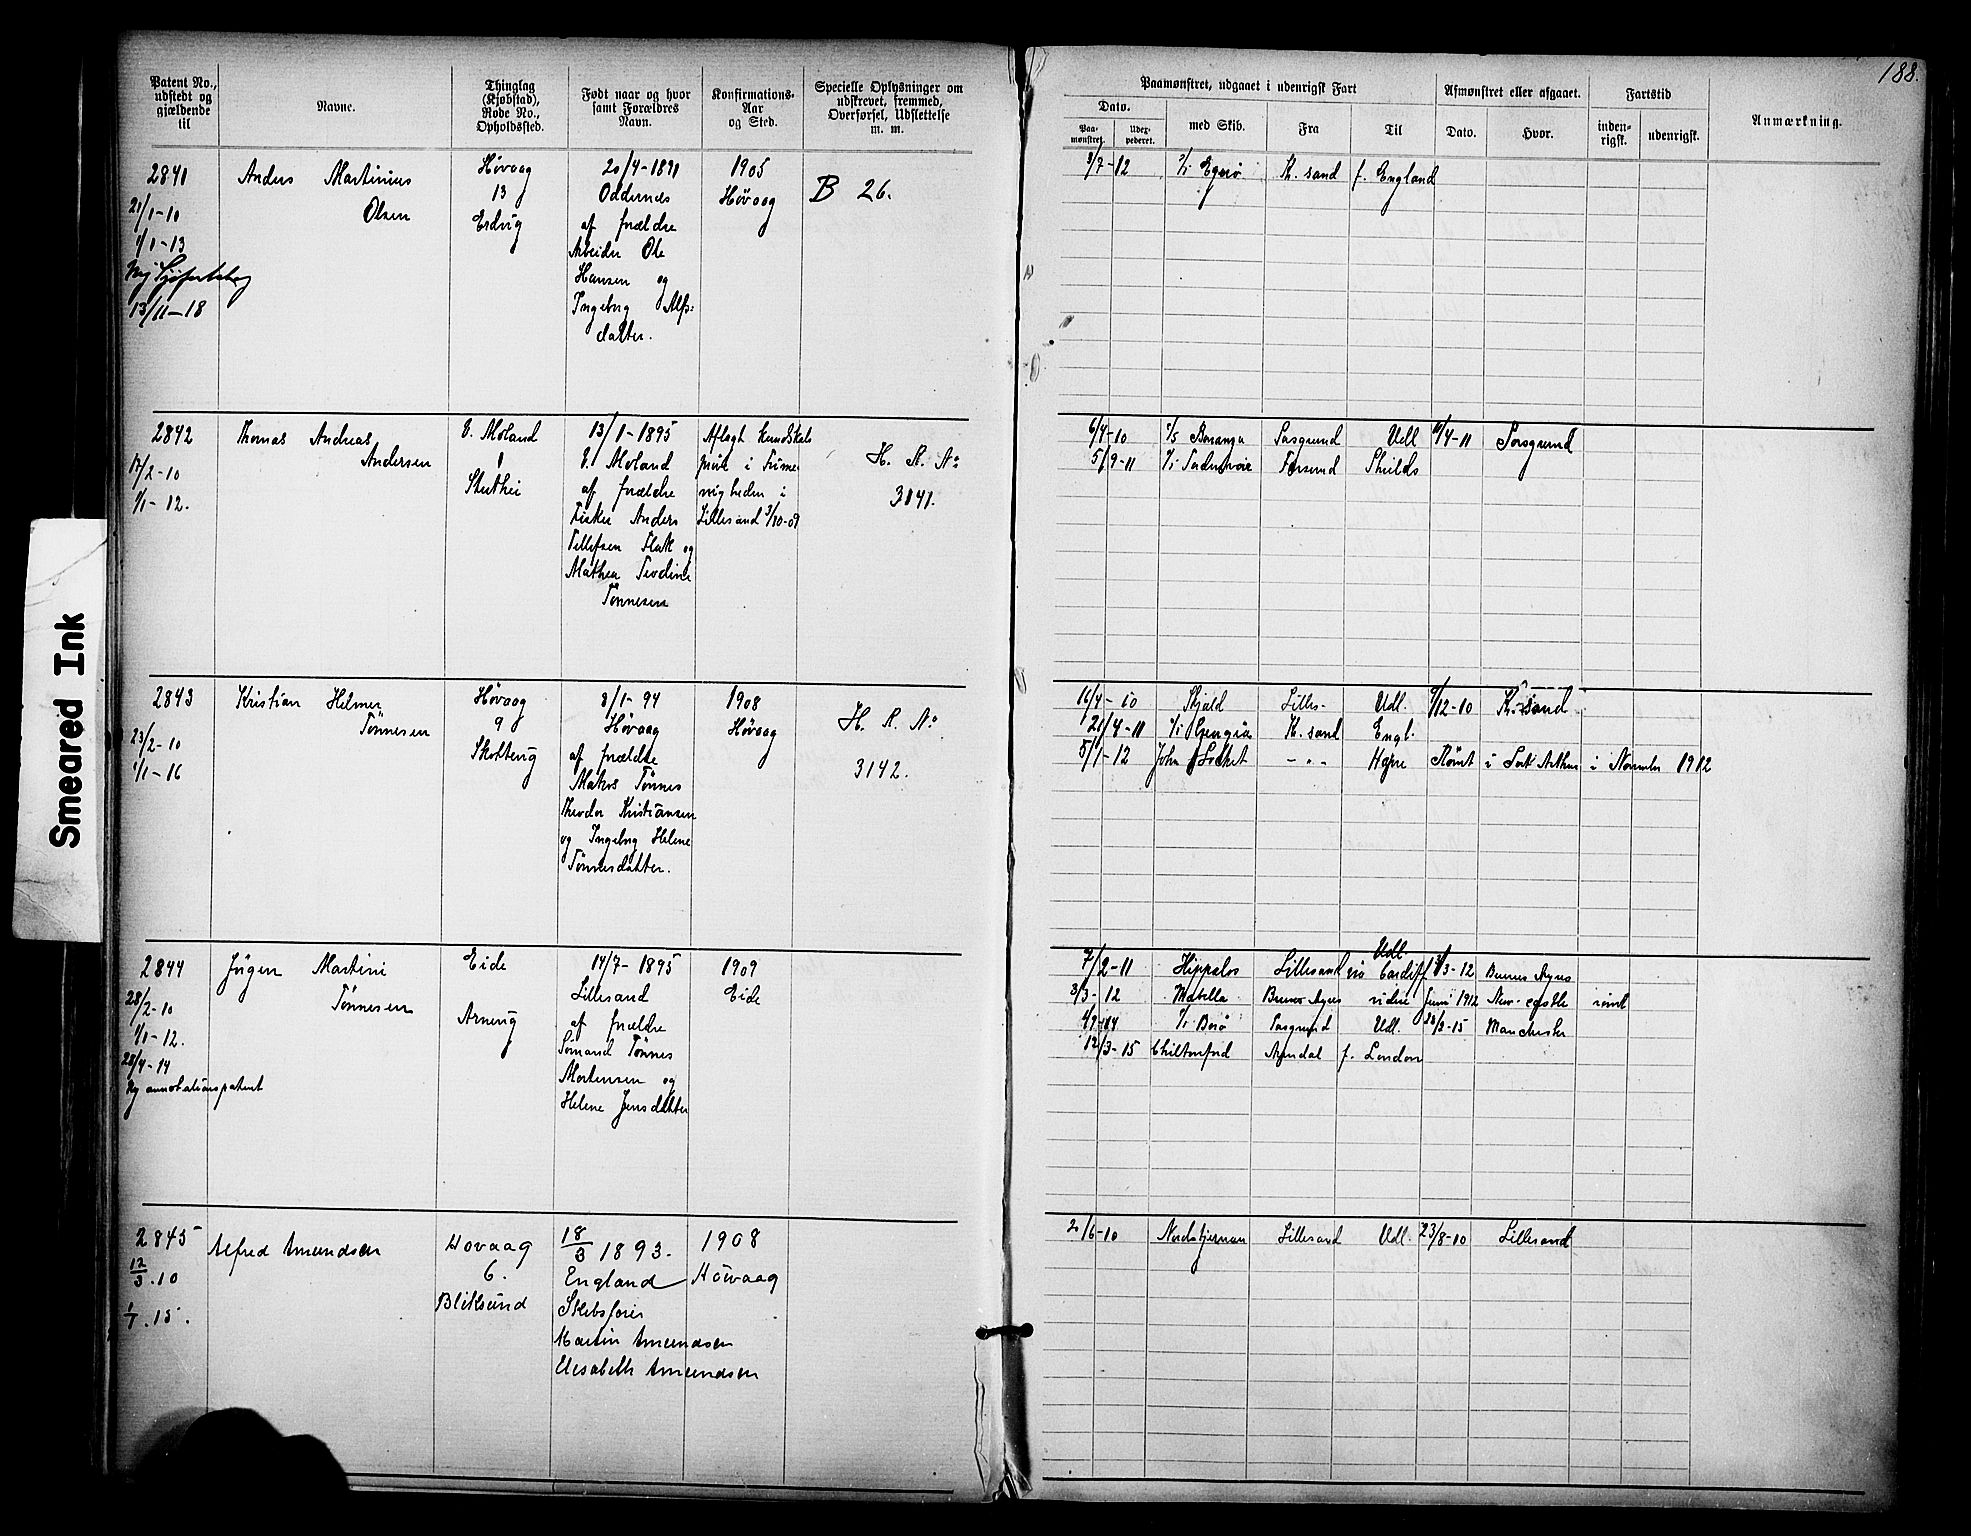 188.
Patent No., udstedt og gjældende til
Navne.
Thinglag (Kjøbstad), Rode No., Opholdssted.
Født naar og hvor samt Forældres Navn.
Konfirmations-Aar og Sted.
Specielle Oplysninger om udskrevet, fremmed, Overførsel, Udslettelse m. m.
Paamønstret, udgaaet i udenrigsk Fart
Dato.
Paa-mønstret.
Udex-pederet.
med Skib.
Fra
Til
Afmønstret eller afgaaet.
Dato.
Hvor.
Fartstid
inden-rigsk.
udenrigsk.
Anmærkning.
2841
21/1-10
1/1-13
13/11-18
Anders Martinius
Olsen
Høvaag
13
20/4-1891
Oddernes
af forældre
Arbeider Ole
Hansen og
Ingeborg Alfs-
datter.
1905
Høvaag
B 26.
3/7-12
Egerø
K. sand
f. England
2842
17/2-10
1/1-12.
Thomas Andreas
Andersen
V. Moland
1
13/1-1895
V. Moland
af forældre
Fisker Anders
Tellefsen Flak og
Mathea Tevoline
Tønnesen
Aflagt kundskabs
prøve i
Lillesand 3/10-09
H. R. No
3141.
6/4-10
Porsgrund
Udl
4-11
Porsgrund
5/9-11
Farsund
Shields
2843
23/2-10
1/1-16
Kristian Helmer
Tønnesen
Høvaag
9
8/1-94
Høvaag
af forældre
Matros Tønnes
Theodor Kristiansen
og Ingeborg Helene
Tønnesdatter.
1908
Høvaag
H. R. No
3142.
16/4-10
Skjold
Lilles-
Udl.
12-10
K. sand
21/4-11
K. sand
Engl.
5/1-12
John Locket
- " -
Rømt i Port Arthur i November 1912
2844
28/2-10
1/1-12.
28/4-14
Ny annotationspatent
Jørgen Martini
Tønnesen
Eide
14/7-1895
Lillesand
af forældre
Sømand Tønnes
Mortensen og
Helene Jensdatter
1909
Eide
Udl
7/2-11
Hippalos
Lillesand
via Cardiff
3-12
Buenos Ayres
3/3-12
Mabella
Buenos Ayres
videre
Juni 1912
New-castle
rømt
Borø
Porsgrund
Udl.
3-15
Manchester
12/3-15
Arendal
f. London
2845
12/3.10
1/1.15.
Alfred Amundsen
Høvaag
6.
Bliksund
18/3 1893.
England
Skibsfører
Martin Amundsen
Elesabeth Amundsen
1908
Høvaag
20/6-10
Nordstjernen
Lillesand
Udl.
23/8-10
Lillesand
Smeared Ink